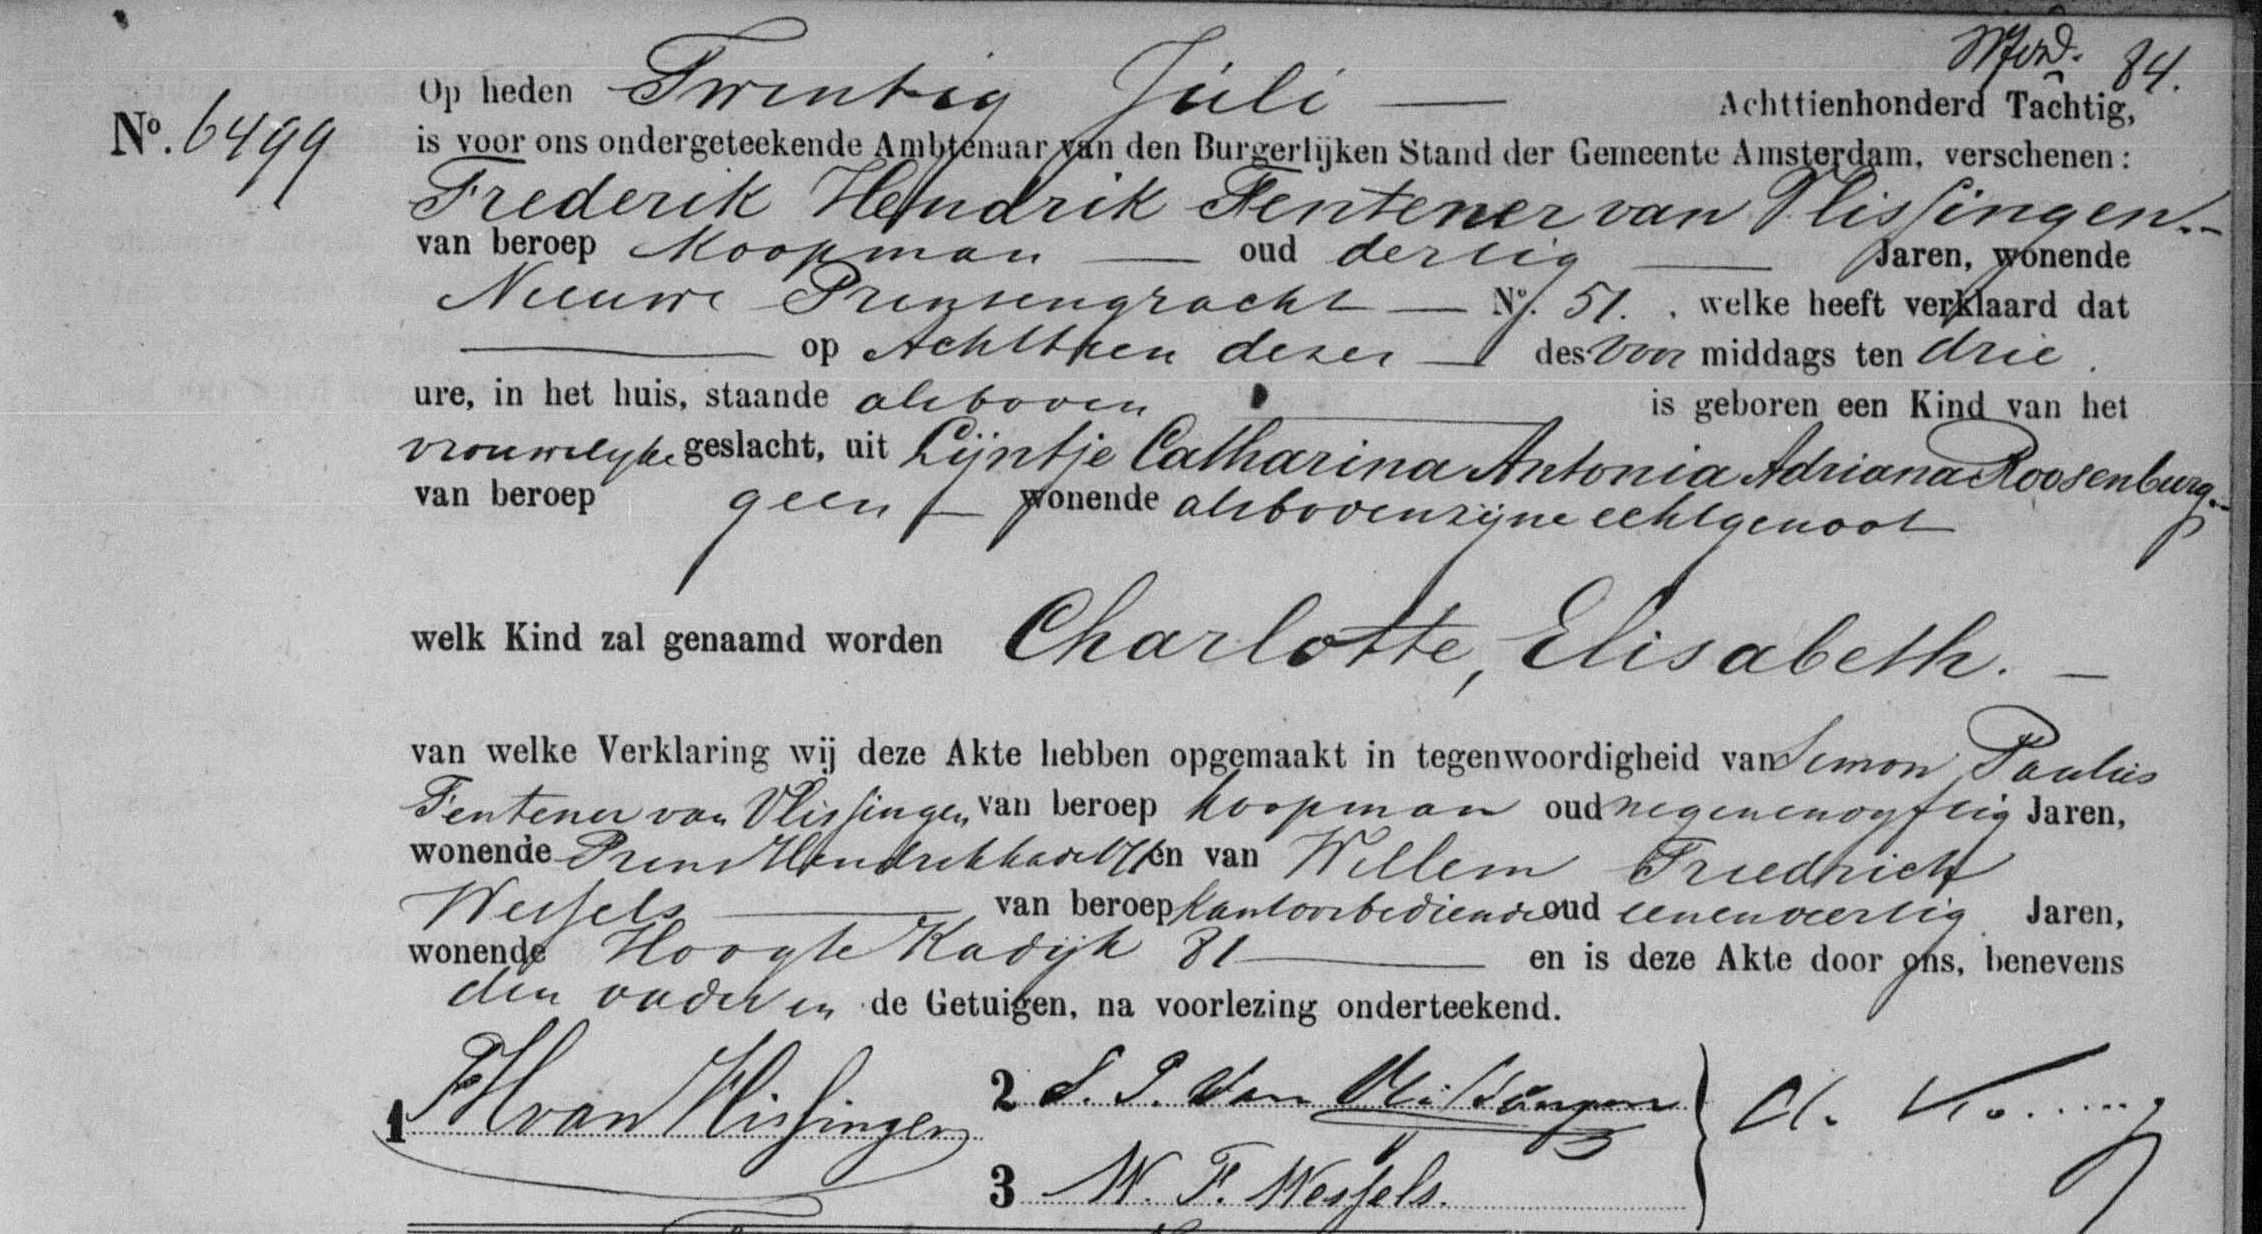 84.
Op heden Twintig Juli — Achttienhonderd Tachtig,
No. 6499
is voor ons ondergeteekende Ambtenaar van den Burgerlijken Stand der Gemeente Amsterdam, verschenen:
Frederik Hendrik Fentener van Vlissingen.-
van beroep Koopman — oud dertig — Jaren, wonende
Nieuwe Prinsengracht — No. 51. , welke heeft verklaard dat
— op Achttien dezer — des Voor middags ten drie .
ure, in het huis, staande alsboven — is geboren een Kind van het
vrouwelyke geslacht, uit Lijntje Catharina Antonia Adriana Roosenburg.-
van beroep geen — wonende alsboven zijne echtgenoot
welk Kind zal genaamd worden Charlotte, Elisabeth. —
van welke Verklaring wij deze Akte hebben opgemaakt in tegenwoordigheid van Simon Paulus
Fentener van Vlissingen van beroep koopman oud negenenvyftig Jaren,
wonende Prins Hendrikkade en van Willem Friedrich
Wessels — van beroep kantoorbediende oud eenenveertig Jaren,
wonende Hoogte Kadijk 81 — en is deze Akte door ons, benevens
den vader en de Getuigen, na voorlezing onderteekend.
1 FH van Vlissingen
2 S. P. Van Vlissingen
3 W. F. Wessels.